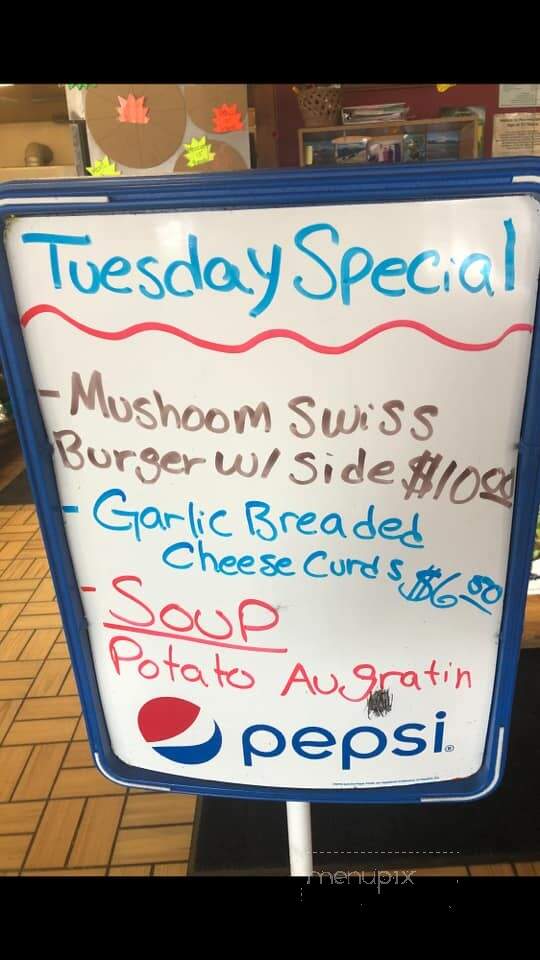 Tuesday Special
- Mushoom Swiss
Burger w/ Side $10.00
- Garlic Breaded
Cheese Curds $6.50
- Soup
Potato Augratin
pepsi
menupix